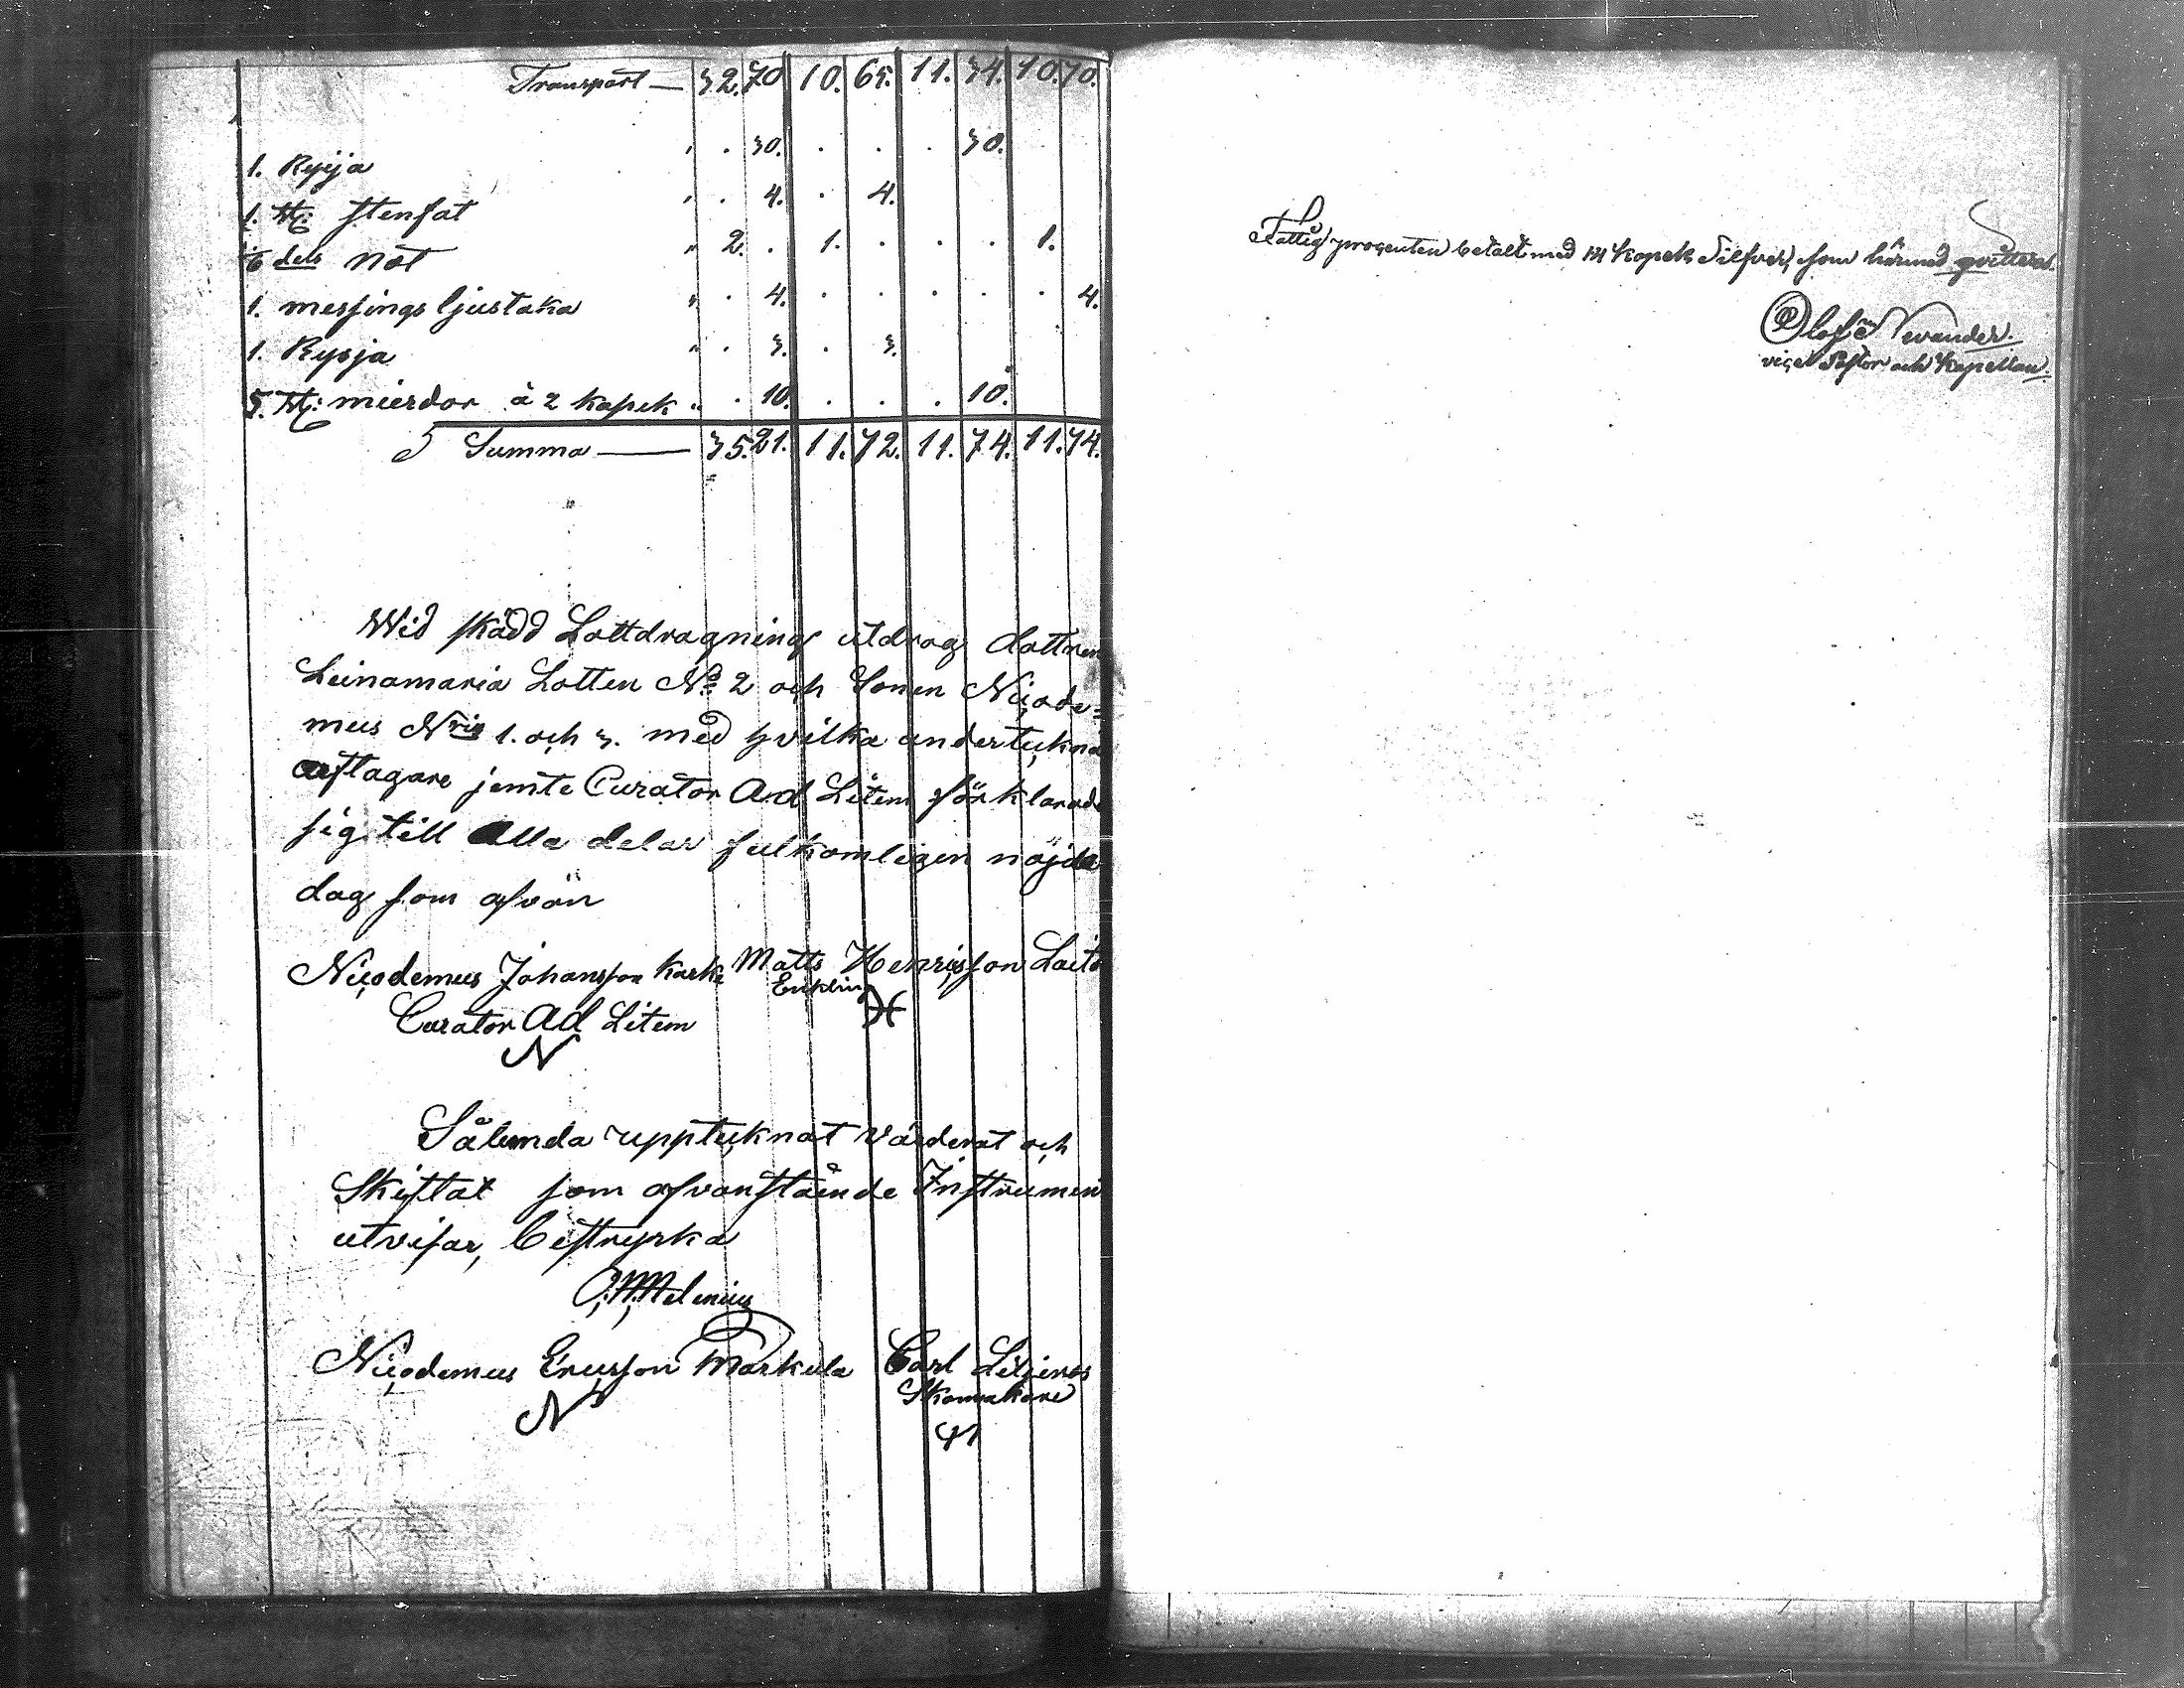 Transport — 32. 70 10. 65. 11. 34. 10. 70.
1. Ryija " . 30. . . . 30.
1. st: stenfat " . 4. . 4.
1/6 dels not " 2. . 1. . . . 1.
1. messings ljustaka " . 4. . . . . . 4.
1. Rysja " . 3. . 3.
5. st: mierdor à 2 kopek " . 10. . . . 10.
Summa — 35. 21. 11. 72. 11. 74. 11. 74.
Wid skedd Lottdragning utdrog dottren
Leinamaria Lotten No 2 och Sonen Nicode=
mus Nris 1. och 3. med hvilka underteckna
arftagare jemte Curator Ad Litem förklarade
sig till alla delar fulkomligen nöjda
dag som ofvan
Nicodemus Johansson Karhe Matts Henricsson Laito
Enkling
Curator Ad Litem
N
Sålunda upptecknat värderat och
Skiftat som ofvanstående Instrument
utvisar, bestyrka
Melenius
Nicodemus Ericsson Markula Carl Liljeros
Skomakare
N
Fattigprocenten betalt med 14 Kopek Silfver, som härmed qvitteras.
Olof Nevander.
vice Pastor och Kapellan.